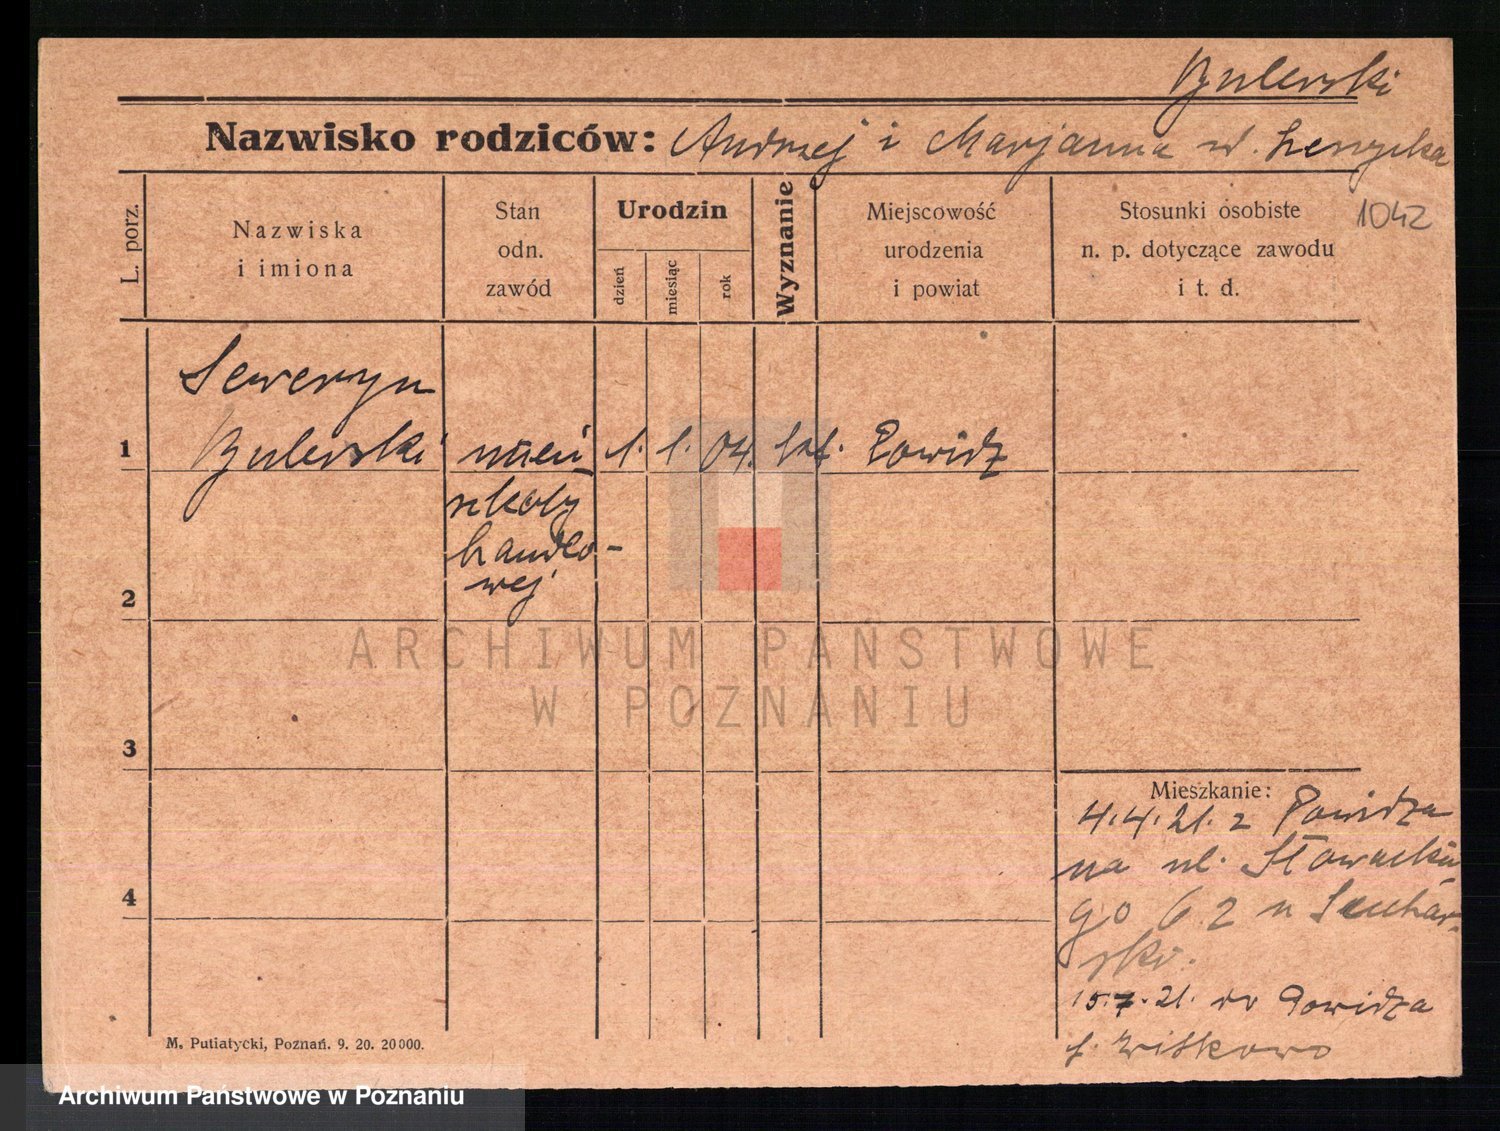 Bulerski
Nazwisko rodziców: Andrzej i Marjanna
1042
L. porz.
Nazwiska
i imiona
Stan
odn.
zawód
Urodzin
dzień
miesiąc
rok
Wyznanie
Miejscowość
urodzenia
i powiat
Stosunki osobiste
n. p. dotyczące zawodu
i t. d.
Seweryn
1 Bulerski uczeń 1. 1. 04. kat. Powidz
szkoły
handlo-
wej
2
3
4
Mieszkanie:
4.4.21. z Powidza
na ul. Słowackie
go 62 u
15.7.21. do Powidza
p. Witkowo
M. Putiatycki, Poznań. 9. 20. 20000.
ARCHIWUM PAŃSTWOWE
W POZNANIU
Archiwum Państwowe w Poznaniu